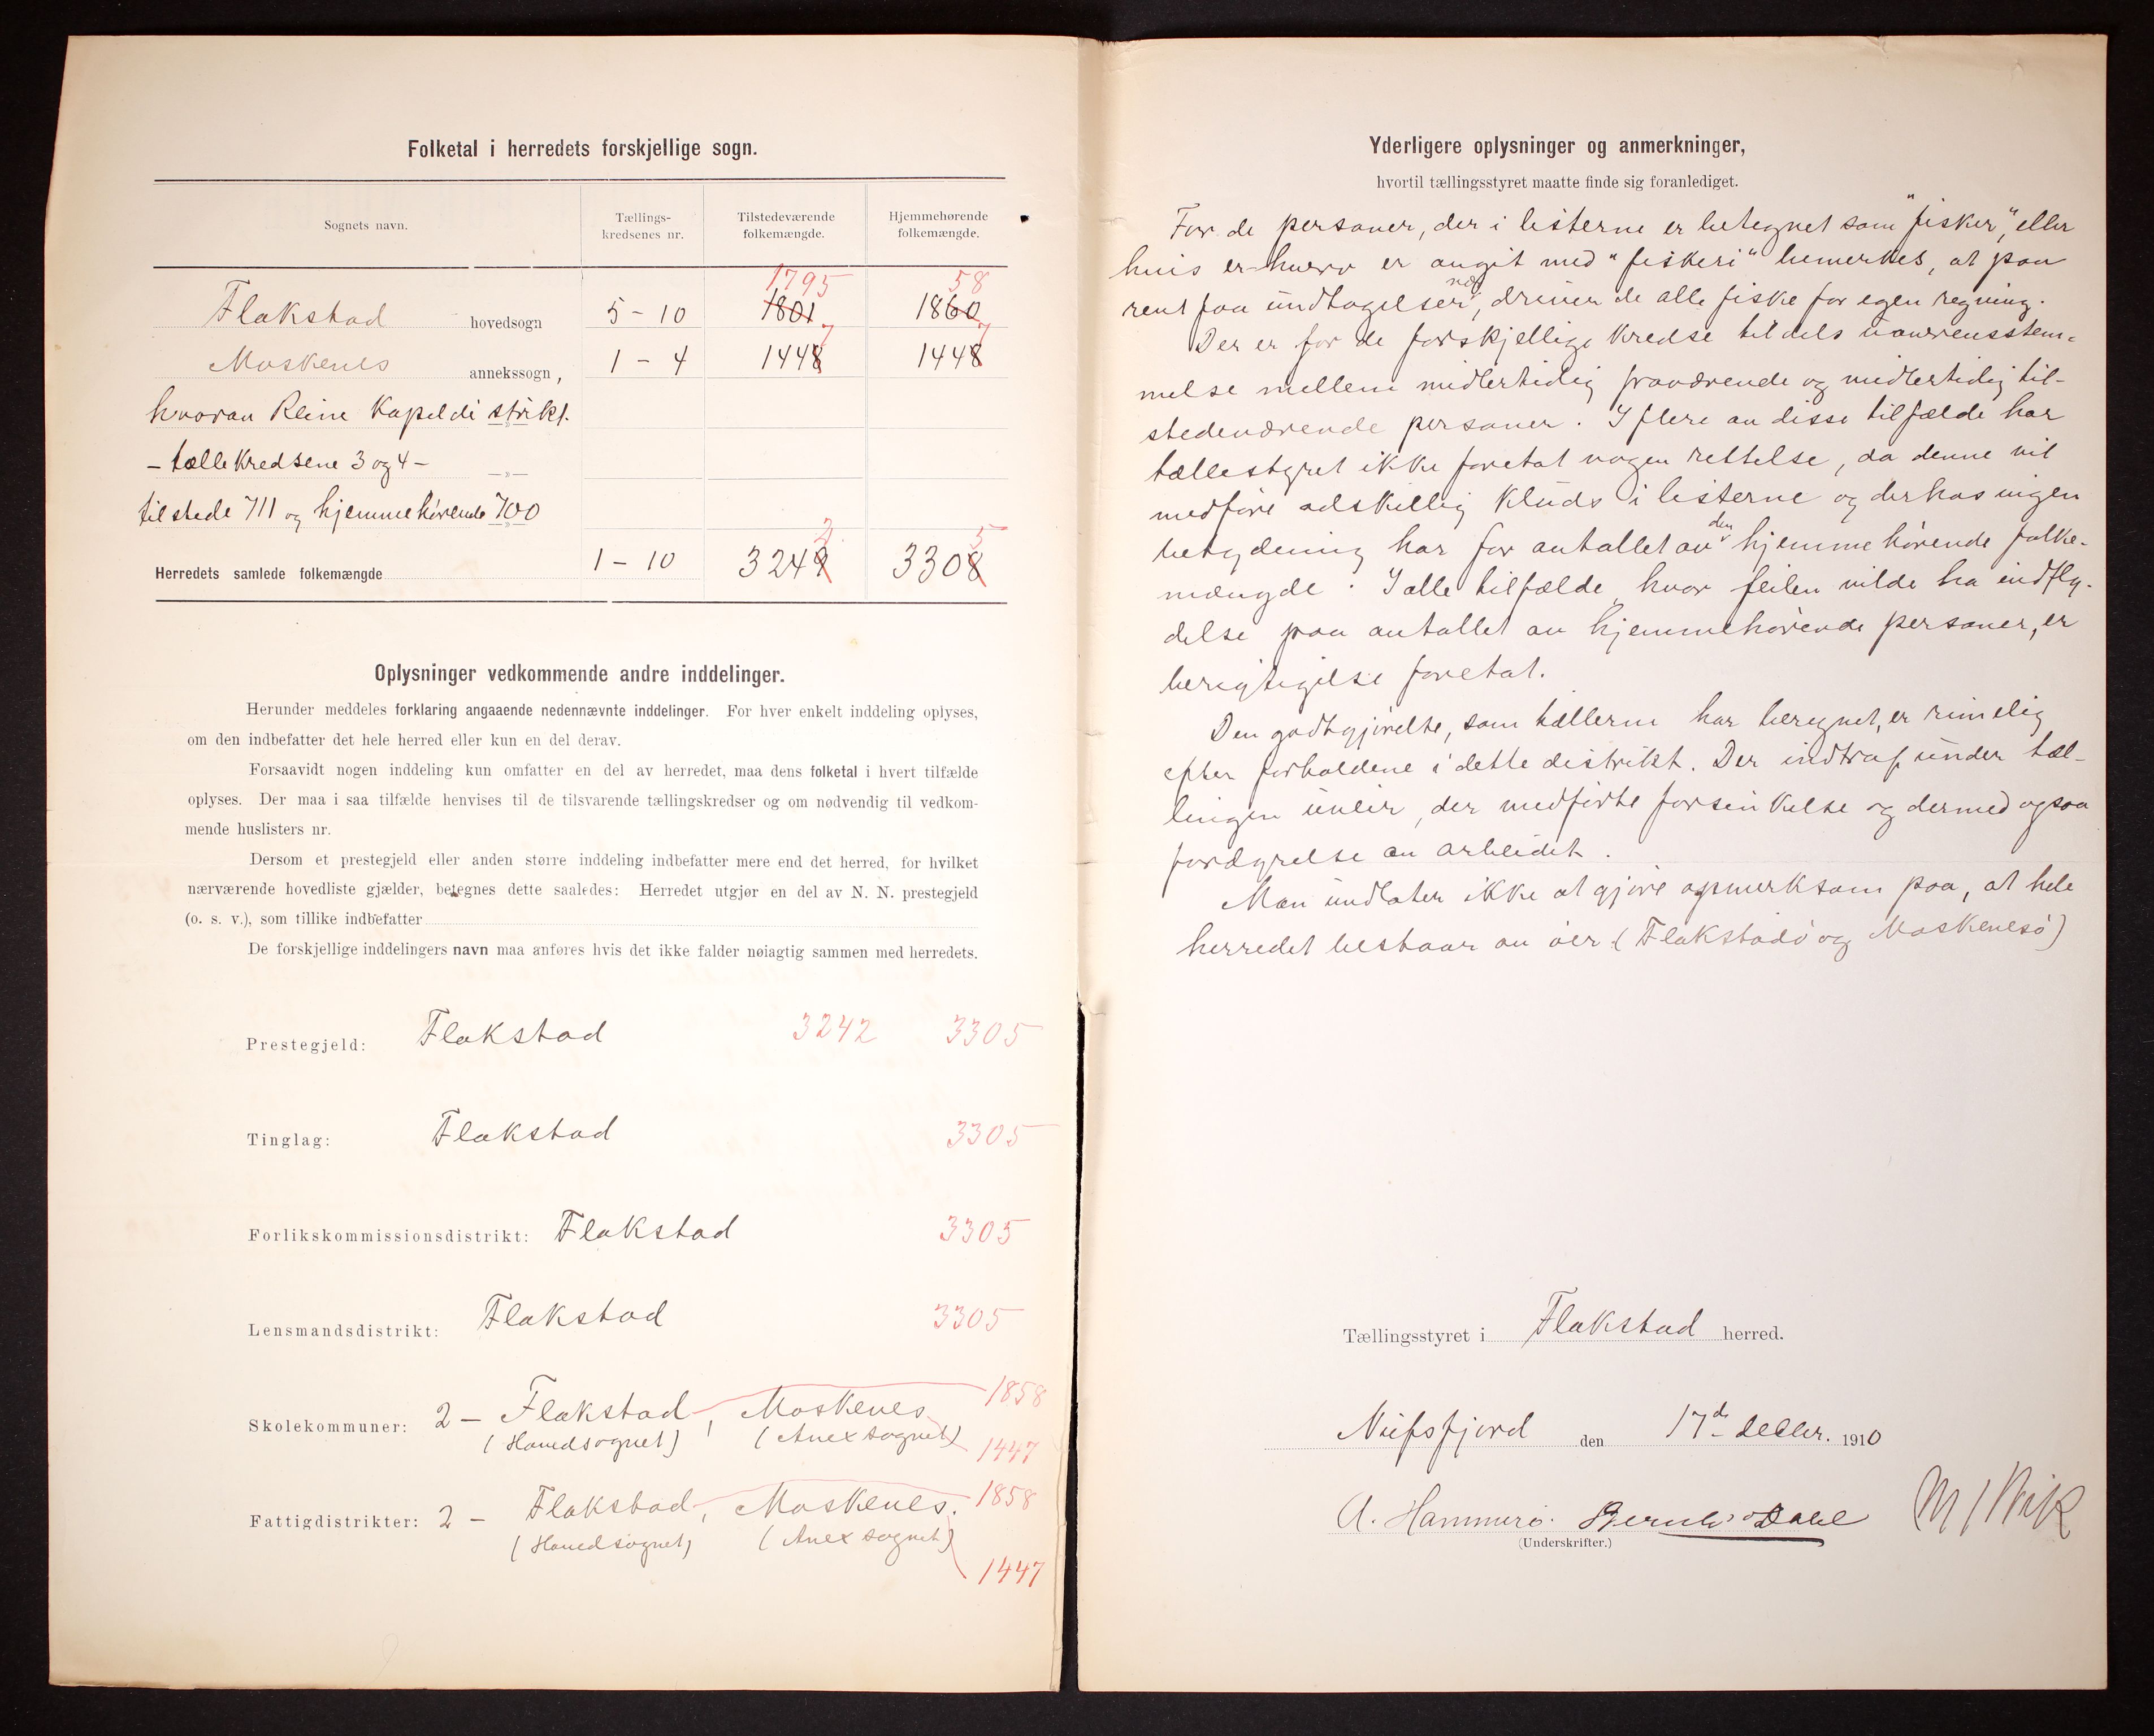 Folketal i herredets forskjellige sogn.
Sognets navn.
Tællings-
kredsenes nr.
Tilstedeværende
folkemængde.
Hjemmehørende
folkemængde.
1795
58
Flakstad hovedsogn 5 - 10 1801 1860
7 7
Moskenes annekssogn, 1 - 4 1448 1448
hvorav Reine Kapeldistrikt.
- tællekredsene 3 og 4 -
tilstede 711 og hjemmehørende 700
2 5
Herredets samlede folkemængde 1 - 10 3249 3308
Oplysninger vedkommende andre inddelinger.
Herunder meddeles forklaring angaaende nedennævnte inddelinger. For hver enkelt inddeling oplyses,
om den indbefatter det hele herred eller kun en del derav.
Forsaavidt nogen inddeling kun omfatter en del av herredet, maa dens folketal i hvert tilfælde
oplyses. Der maa i saa tilfælde henvises til de tilsvarende tællingskredser og om nødvendig til vedkom-
mende huslisters nr.
Dersom et prestegjeld eller anden større inddeling indbefatter mere end det herred, for hvilket
nærværende hovedliste gjælder, betegnes dette saaledes: Herredet utgjør en del av N. N. prestegjeld
(o. s. v.), som tillike indbefatter
De forskjellige inddelingers navn maa anføres hvis det ikke falder nøiagtig sammen med herredets.
Prestegjeld: Flakstad 3242 3305
Tinglag: Flakstad 3305
Forlikskommissionsdistrikt: Flakstad 3305
Lensmandsdistrikt: Flakstad 3305
Skolekommuner: 2 - Flakstad, Moskenes 1858
(Hovedsognet) (Anex sognet) 1447
Fattigdistrikter: 2 - Flakstad, Moskenes. 1858
(Hovedsognet) (Anex sognet)
1447
Yderligere oplysninger og anmerkninger,
hvortil tællingsstyret maatte finde sig foranlediget.
For de personer, der i listerne er betegnet som "fisker", eller
hvis erhverv er angit med "fiskeri" bemerkes, at paa
rent faa undtagelser nær, driver de alle fiske for egen regning.
Der er for de forskjellige kredse tildels uoverensstem-
melse mellem midlertidig fraværende og midlertidig til-
stedeværende personer. I flere av disse tilfælde har
tællestyret ikke foretat nogen rettelse, da denne vil
medføre adskillig kluds i listerne og derhos ingen
betydning har for antallet av den hjemmehørende folke-
mængde. I alle tilfælde, hvor feilen vilde ha indfly-
delse paa antallet av hjemmehørende personer, er
berigtigelse foretat.
Den godtgjørelse, som tællerne har beregnet, er rimelig
efter forholdene i dette distrikt. Der indtraf under tæl-
lingen uveir, der medførte forsinkelse og dermed ogsaa
fordyrelse av arbeidet.
Man undlater ikke at gjøre opmerksom paa, at hele
herredet bestaar av øer (Flakstadø og Moskenesø)
Tællingsstyret i Flakstad herred.
Nufsfjord den 17de decbr. 1910
A. Hammerø. Bernh. Dahl
(Underskrifter.)